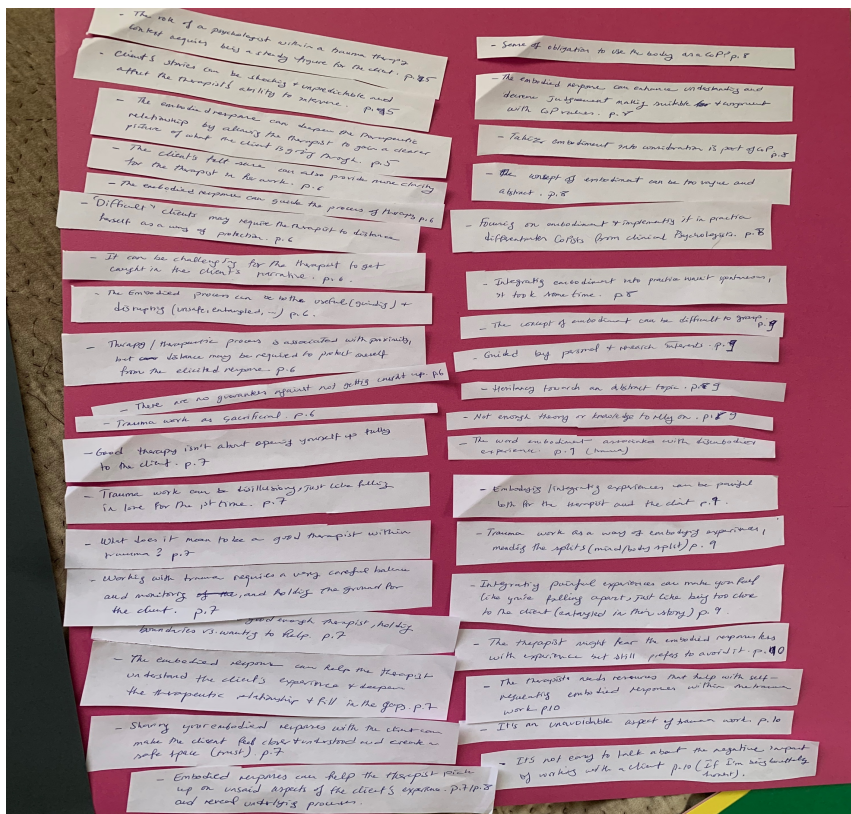 - The role of a psychologist within a trauma therapy
context requires being a steady figure for the client. p.5
- Client's stories can be shocking + unpredictable and
affect the therapist's ability to intervene. p.5
- The embodied response can deepen the therapeutic
relationship by allowing the therapist to gain a clearer
picture of what the client is going through. p.5
- The client's felt sense can also provide more clarity
for the therapist in the work. p.6
- The embodied response can guide the process of therapy p.6
- Difficult clients may require the therapist to distance
herself as a way of protection. p.6
- It can be challenging for the therapist to get
caught in the client's narrative. p.6.
- The Embodied process can be both useful (guiding) +
disrupting (unsafe, entangled, ...) p.6.
- Therapy / therapeutic process is associated with proximity,
but distance may be required to protect oneself
from the elicited response. p.6
- There are no guarantees against not getting caught up. p.6
- Trauma work as sacrificial. p.6
- Good therapy isn't about opening yourself up fully
to the client. p.7
- Trauma work can be disillusioning, just like falling
in love for the 1st time. p.7
- What does it mean to be a good therapist within
trauma? p.7
- Working with trauma requires a very careful balance
and monitoring of the, and holding the ground for
the client. p.7
good enough therapist, holding
boundaries vs. wanting to help. p.7
- The embodied response can help the therapist
understand the client's experience + deepen
the therapeutic relationship + fill in the gaps. p.7
- Sharing your embodied responses with the client can
make the client feel closer + understood and create a
safe space (trust). p.7
- Embodied responses can help the therapist pick
up on unsaid aspects of the client's experience. p.7/p.8
and reveal underlying processes.
- Sense of obligation to use the body as a CoP? p.8
- The embodied response can enhance understanding and
decrease judgement making suitable + congruent
with CoP values. p.8
- Taking embodiment into consideration is part of CoP p.8
- The concept of embodiment can be too vague and
abstract. p.8
- Focusing on embodiment + implementing it in practice
differentiates CoPists from clinical Psychologists. p.8
- Integrating embodiment into practice wasn't spontaneous,
it took some time. p.8
- The concept of embodiment can be difficult to grasp. p.9
- Guided by personal + research interests. p.9
- Hesitancy towards an abstract topic. p.9
- Not enough theory or knowledge to rely on. p.9
- The word embodiment associated with disembodied
experience. p.9 (trauma)
- Embodying/integrating experiences can be painful
both for the therapist and the client p.9.
- Trauma work as a way of embodying experiences,
mending the splits (mind/body split) p.9
- Integrating painful experiences can make you feel
like you're falling apart, just like being too close
to the client (entangled in their story) p.9.
- The therapist might fear the embodied response less
with experience but still prefers to avoid it. p.10
- The therapist needs resources that help with self-
regulating embodied responses within the trauma
work p.10
- It's an unavoidable aspect of trauma work. p.10
- It's not easy to talk about the negative impact
by working with a client p.10 (If I'm being brutally
honest).